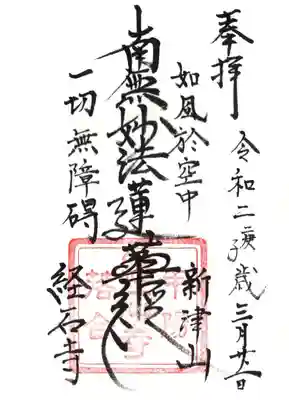 奉拝
令和二庚子歳三月
如風於空中
南無妙法蓮華経
一切無障碍
新津山
経石寺